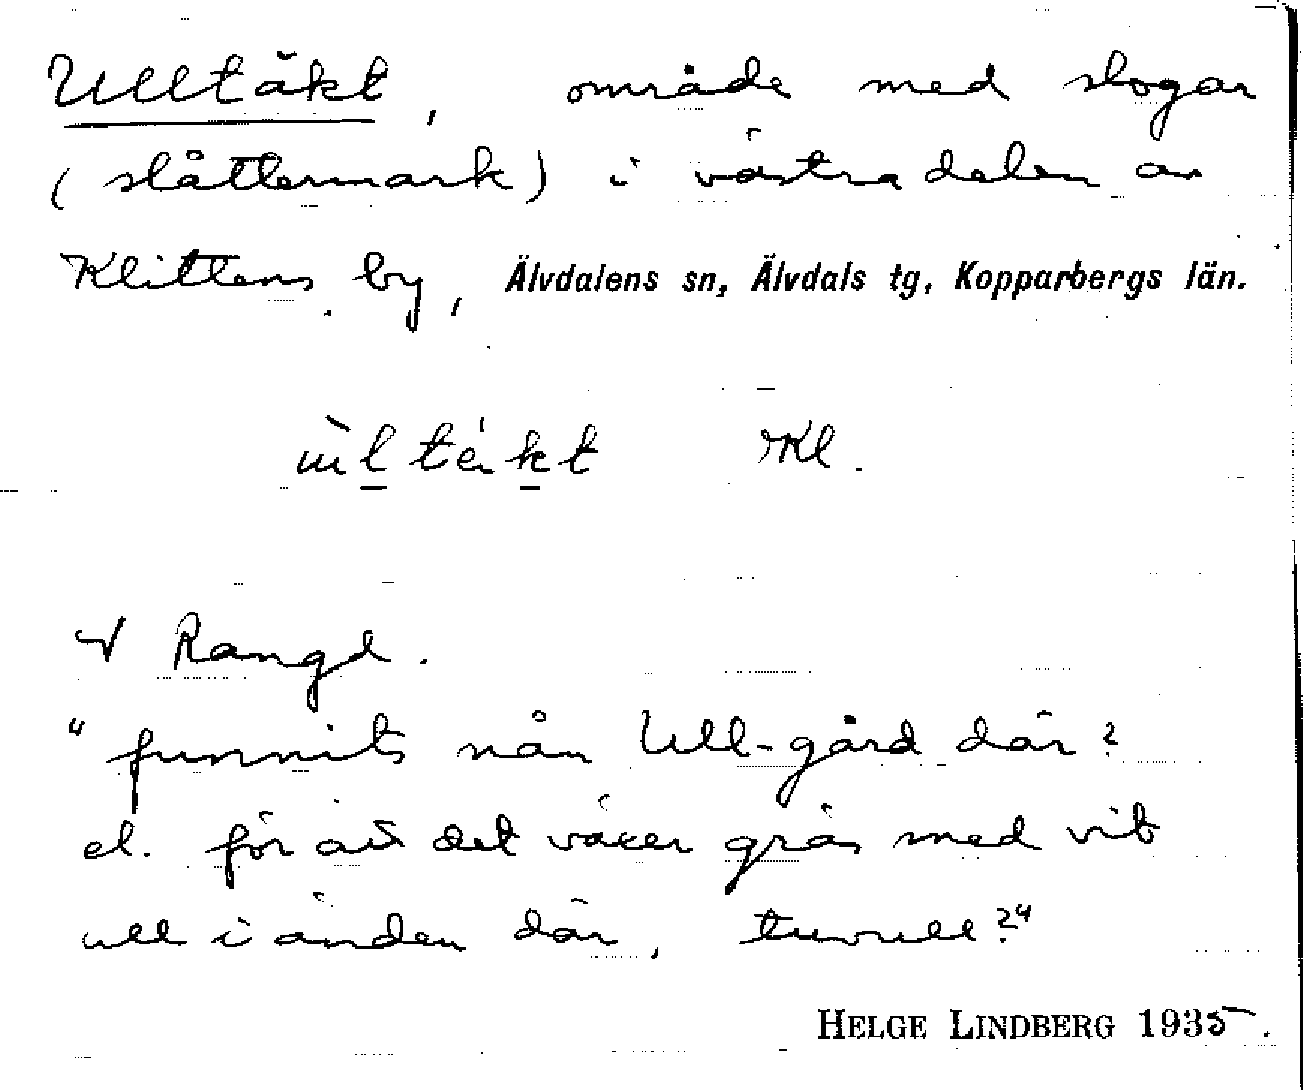 Ulltäkt, område med slogar
(slåttermark) i västra delen av
Klittens by, Älvdalens sn, Älvdals tg, Kopparbergs län.
ùl täkt Kl.
V Rangl.
"funnits nån Ull-gård där?
el. för att det växer gräs med vit
ull i änden där, tuvull?"
HELGE LINDBERG 1935.